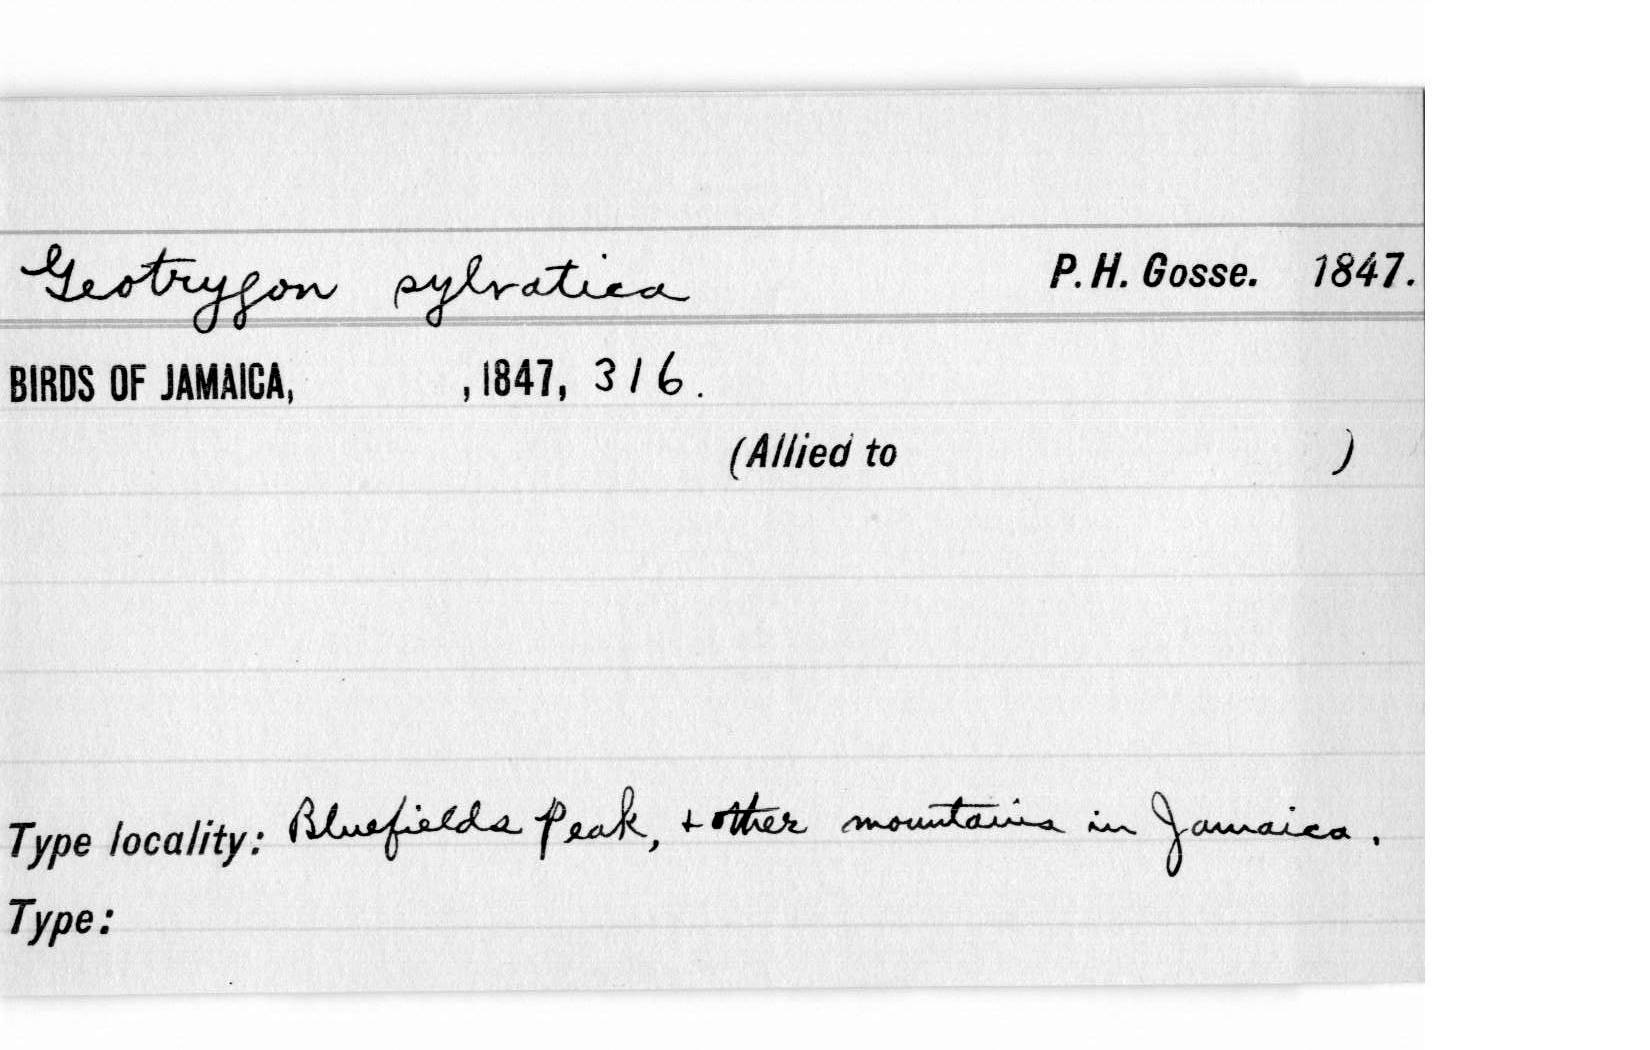 Geotrygon sylvatica P. H. Gosse. 1847.
BIRDS OF JAMAICA, , 1847, 316.
(Allied to )
Type locality: Bluefields Peak, + other mountains in Jamaica.
Type: